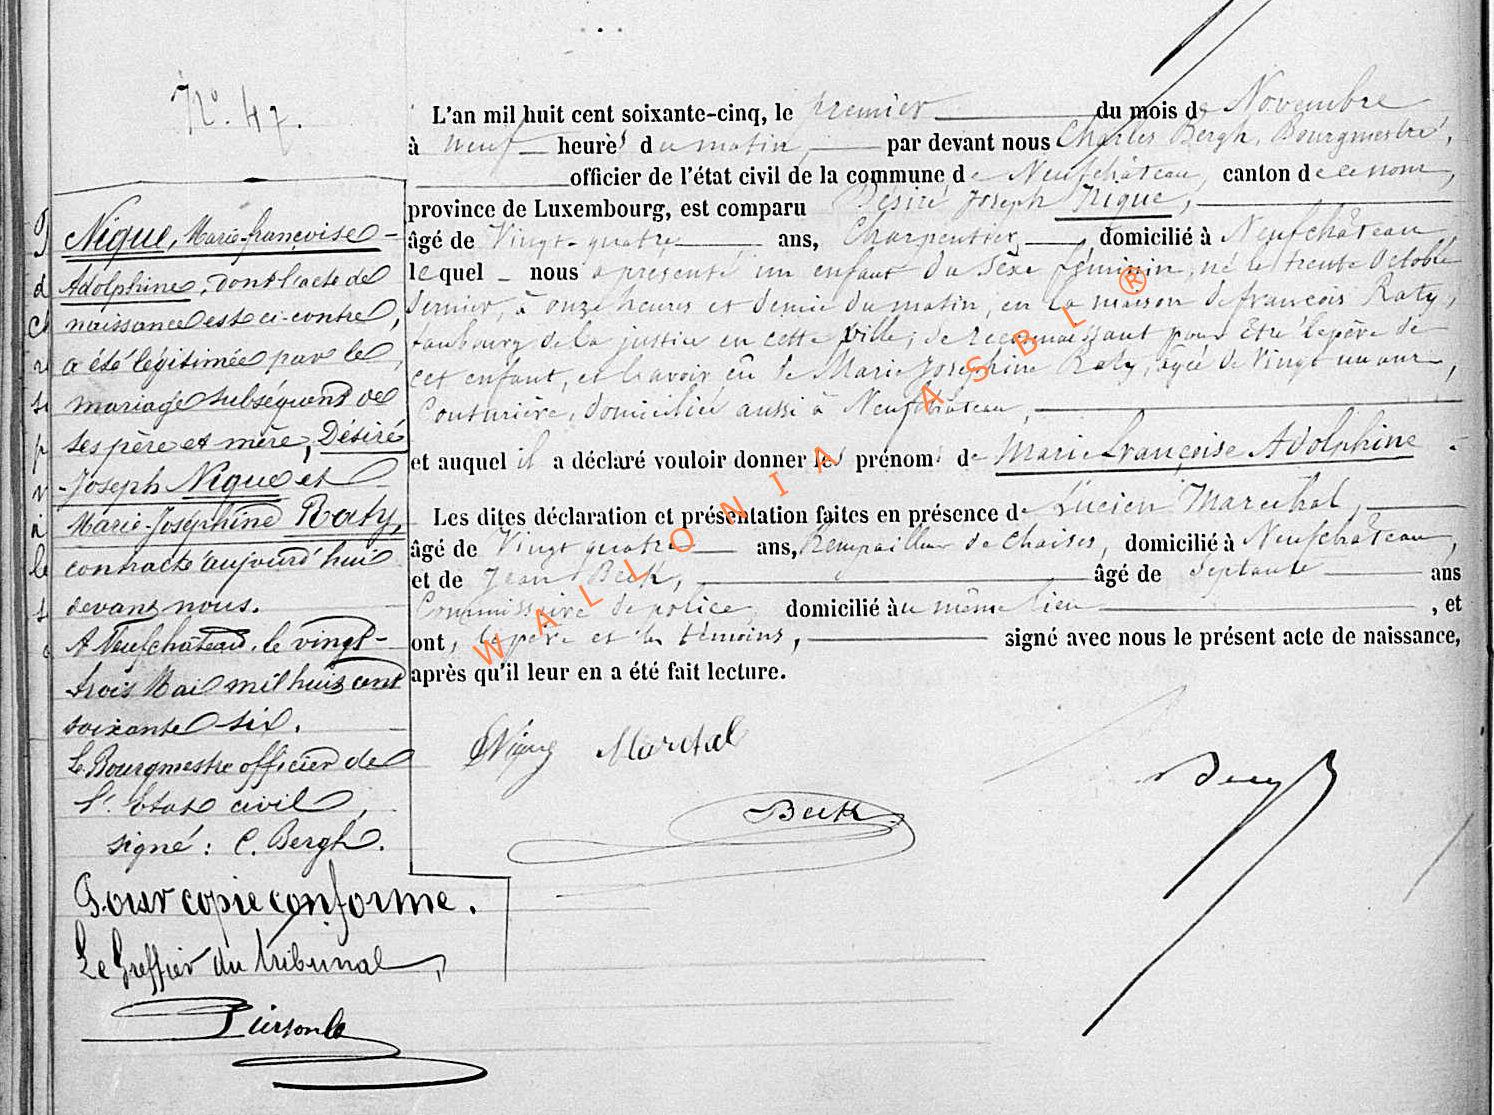 N.º 47.
L'an mil huit cent soixante-cinq, le premier du mois de Novembre
à neuf heures du matin, par devant nous Charles Bergh, Bourgmestre,
officier de l'état civil de la commune de Neufchâteau, canton de ce nom,
province de Luxembourg, est comparu Désiré Joseph Nique,
âgé de Vingt-quatre ans, Charpentier, domicilié à Neufchâteau,
lequel nous a présenté un enfant du sexe féminin, né le trente Octobre
dernier, à onze heures et demie du matin, en la maison de françois Raty,
faubourg de la justice en cette ville, de reconnaissant pour être le père de
cet enfant, et l'avoir eû de Marie Joséphine Raty, agée de Vingt un ans,
Couturière, domiciliée aussi à Neufchâteau,
et auquel il a déclaré vouloir donner les prénoms de Marie françoise Adolphine
Les dites déclaration et présentation faites en présence de Lucien Marechal,
âgé de Vingt quatre ans, Rempailleur de Chaises, domicilié à Neufchâteau,
et de Jean Beck, âgé de septante ans
Commissaire de police, domicilié au même lieu , et
ont, le père et les témoins, signé avec nous le présent acte de naissance,
après qu'il leur en a été fait lecture.
Marchal
Beck
Nique, Marie-françoise
Adolphine, dont l'acte de
naissance est ci-contre,
a été légitimée par le
mariage subséquent de
ses père et mère, Désiré
Joseph Nique et
Marie-Joséphine Raty,
contracté aujourd'hui
devant nous.
A Neufchâteau, le vingt-
trois Mai mil huit cent
soixante six.
Le Bourgmestre officier de
l'Etat civil,
signé : C. Bergh.
Pour copie conforme.
Le Greffier du tribunal,
WALLONIA ASBL ®